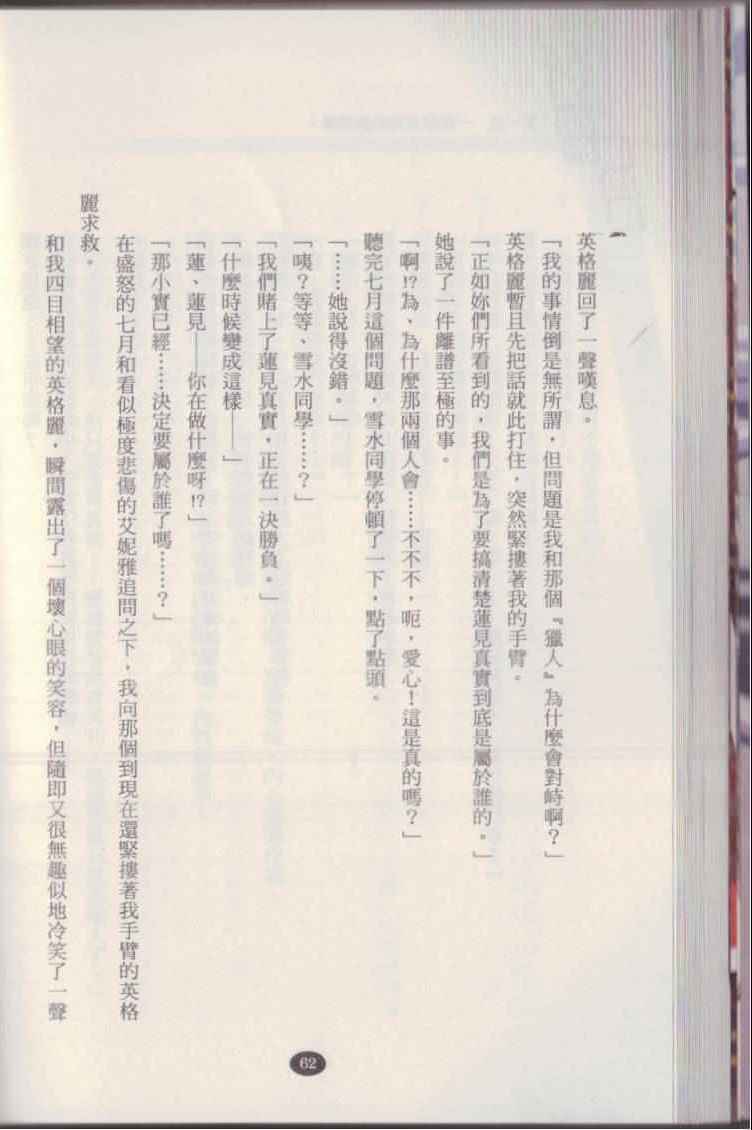 英格麗回了一聲嘆息。
「我的事情倒是無所謂，但問題是我和那個『獵人』為什麼會對峙啊？」
英格麗暫且先把話就此打住，突然緊摟著我的手臂。
「正如妳們所看到的，我們是為了要搞清楚蓮見真實到底是屬於誰的。」
她說了一件離譜至極的事。
「啊!?為、為什麼那兩個人會……不不不，呃，愛心！這是真的嗎？」
聽完七月這個問題，雪水同學停頓了一下，點了點頭。
「……她說得沒錯。」
「咦？等等、雪水同學……？」
「我們賭上了蓮見真實，正在一決勝負。」
「什麼時候變成這樣——」
「蓮、蓮見——你在做什麼呀!?」
「那小實已經……決定要屬於誰了嗎……？」
在盛怒的七月和看似極度悲傷的艾妮雅追問之下，我向那個到現在還緊摟著我手臂的英格
麗求救。
和我四目相望的英格麗，瞬間露出了一個壞心眼的笑容，但隨即又很無趣似地冷笑了一聲
62